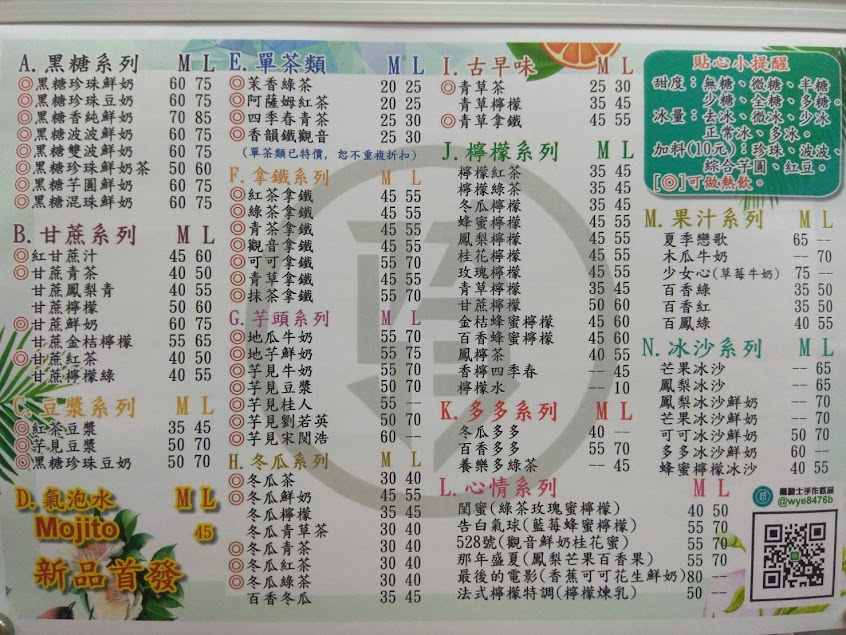 A. 黑糖系列 M L
◎黑糖珍珠鮮奶 60 75
◎黑糖珍珠豆奶 60 75
◎黑糖香純鮮奶 70 85
◎黑糖波波鮮奶 60 75
◎黑糖雙波鮮奶 60 75
◎黑糖珍珠鮮奶茶 50 60
◎黑糖芋圓鮮奶 60 75
◎黑糖混珠鮮奶 60 75
B. 甘蔗系列 M L
◎紅甘蔗汁 45 60
◎甘蔗青茶 40 50
甘蔗鳳梨青 40 55
甘蔗檸檬 50 60
◎甘蔗鮮奶 60 75
甘蔗金桔檸檬 55 65
◎甘蔗紅茶 40 50
甘蔗檸檬綠 40 55
C. 豆漿系列 M L
◎紅茶豆漿 35 45
◎芋見豆漿 50 70
◎黑糖珍珠豆奶 50 70
D. 氣泡水 M L
Mojito 45
新品首發
E. 單茶類 M L
◎茉香綠茶 20 25
◎阿薩姆紅茶 20 25
◎四季春青茶 25 30
◎香韻鐵觀音 25 30
(單茶類已特價，恕不重複折扣)
F. 拿鐵系列 M L
◎紅茶拿鐵 45 55
◎綠茶拿鐵 45 55
◎青茶拿鐵 45 55
◎觀音拿鐵 45 55
◎可可拿鐵 55 70
◎青草拿鐵 45 55
◎抹茶拿鐵 55 70
G. 芋頭系列 M L
◎地瓜牛奶 55 70
◎地芋鮮奶 55 75
◎芋見牛奶 55 70
◎芋見豆漿 50 70
◎芋見桂人 55 --
◎芋見劉若英 50 70
◎芋見宋閔浩 60 --
H. 冬瓜系列 M L
◎冬瓜茶 30 40
◎冬瓜鮮奶 45 55
冬瓜檸檬 35 45
冬瓜青草茶 30 40
◎冬瓜青茶 30 40
◎冬瓜紅茶 30 40
◎冬瓜綠茶 30 40
百香冬瓜 35 45
I. 古早味 M L
◎青草茶 25 30
青草檸檬 35 45
◎青草拿鐵 45 55
J. 檸檬系列 M L
檸檬紅茶 35 45
檸檬綠茶 35 45
冬瓜檸檬 35 45
蜂蜜檸檬 45 55
鳳梨檸檬 45 55
桂花檸檬 45 55
玫瑰檸檬 45 55
青草檸檬 35 45
甘蔗檸檬 50 60
金桔蜂蜜檸檬 45 60
百香蜂蜜檸檬 45 60
鳳檸茶 40 55
香檸四季春 -- 45
檸檬水 -- 10
K. 多多系列 M L
冬瓜多多 40 --
百香多多 55 70
養樂多綠茶 -- 45
L. 心情系列 M L
閨蜜(綠茶玫瑰蜜檸檬) 40 50
告白氣球(藍莓蜂蜜檸檬) 55 70
528號(觀音鮮奶桂花蜜) 55 70
那年盛夏(鳳梨芒果百香果) 55 70
最後的電影(香蕉可可花生鮮奶) 80 --
法式檸檬特調(檸檬煉乳) 50 --
貼心小提醒
甜度：無糖、微糖、半糖
少糖、全糖、多糖。
冰量：去冰、微冰、少冰
正常冰、多冰。
加料(10元)：珍珠、波波、
綜合芋圓、紅豆。
[◎]可做熱飲。
M. 果汁系列 M L
夏季戀歌 65 --
木瓜牛奶 -- 70
少女心(草莓牛奶) 75 --
百香綠 35 50
百香紅 35 50
百鳳綠 40 55
N. 冰沙系列 M L
芒果冰沙 -- 65
鳳梨冰沙 -- 65
鳳梨冰沙鮮奶 -- 70
芒果冰沙鮮奶 -- 70
可可冰沙鮮奶 50 70
多多冰沙鮮奶 60 --
蜂蜜檸檬冰沙 40 55
騎士手作飲品
@wye8476b